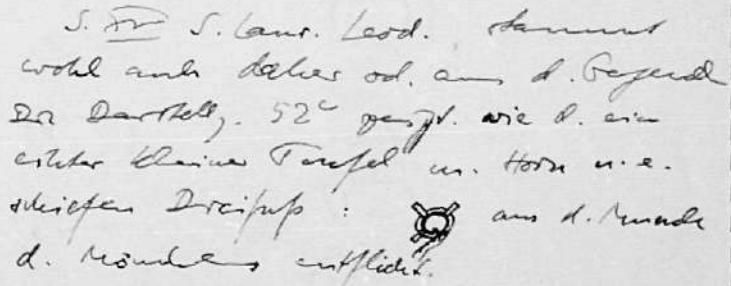 S. XV S. Laur. Leod. stammt
wohl auch daher od. aus d. Gegend
Die Darstellg. 52v zeigt wie d. ein
echter kleiner Teufel m. Horn u. e.
schiefen Dreifuß : aus d. Munde
d. Mönchleins entflieht.